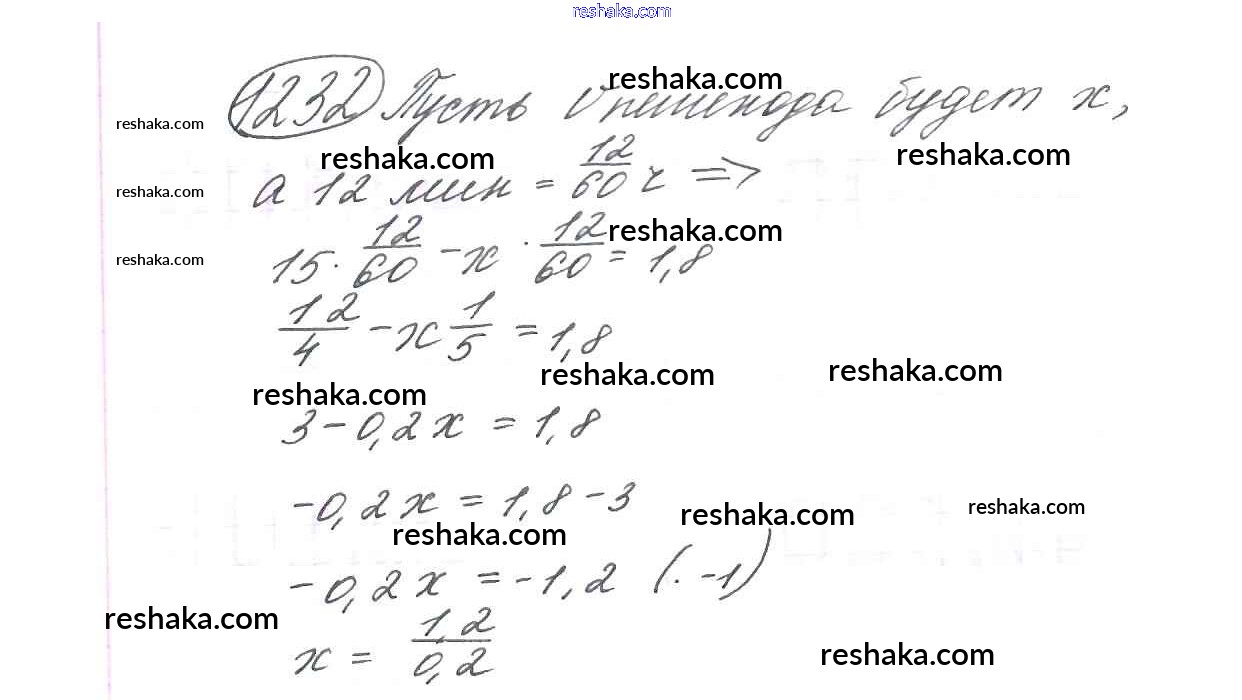 reshaka.com
1232 Пусть v пешехода будет x,
reshaka.com
reshaka.com
а 12 мин = 12/60 ч =>
reshaka.com
reshaka.com
reshaka.com
15 · 12/60 - x · 12/60 = 1,8
reshaka.com
reshaka.com
12/4 - x 1/5 = 1,8
reshaka.com
reshaka.com
reshaka.com
3 - 0,2x = 1,8
-0,2x = 1,8 - 3
reshaka.com
reshaka.com
reshaka.com
-0,2x = -1,2 (· -1)
reshaka.com
x = 1,2/0,2
reshaka.com